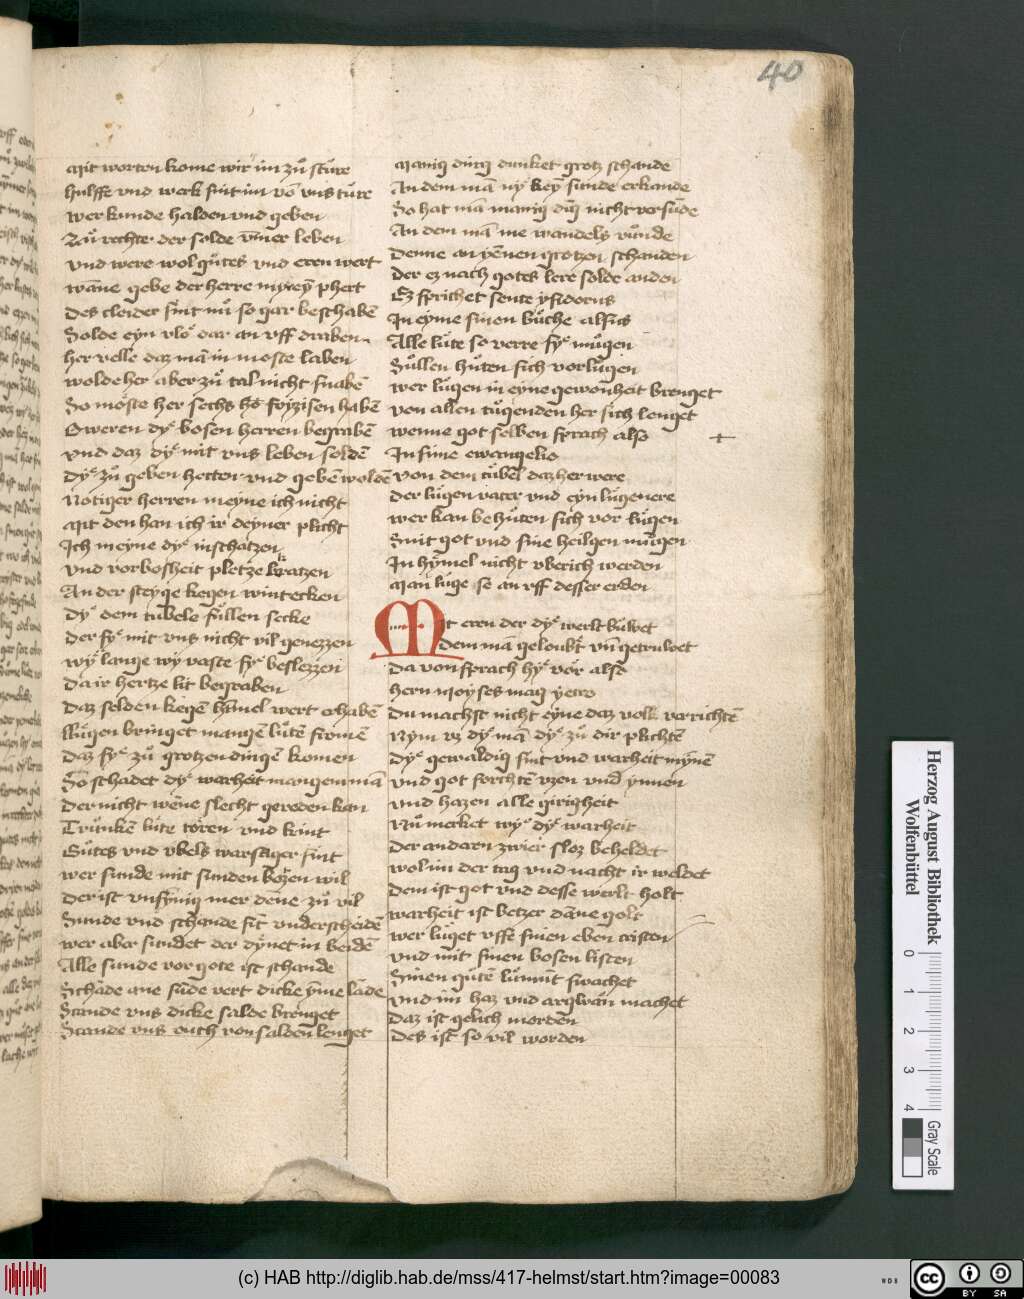 40
Mit worten kome wir im zuͦ stuͤre
hulffe vnd werk sint im võ vns tuͤre
wer kunde halden vnd geben
Zuͦ rechte der solde ym̄er leben
vnd were wol guͤtes vnd eren wert
wāne gebe der herre myrey phert
Des cleider sint mir so gar beschabē
Solde eyn vlo dar an vff draben
her velle daz mā in moste laben
wolde her aber zuͦ tal nicht snabē
So moste her sechs
O weren dy bosen herren begrabē
vnd daz dy mit vns leben soldē
dy zuͦ geben hetten vnd gebē woldē
Notiger herren meyne ich nicht
Mit den han ich ir deyner plicht
Ich meyne dy inschatzen
vnd vor bosheit pletze kratzen
An der steyge kegen wintecken
dy dem tubele fullen secke
der sy mit vns nicht vil genezzen
wy lange wy vaste sy beslezzen
Da ir hertze lit begraben
Daz selden kegē hīmel wert erhabē
Luͤgen bringet mangē luͤtē fromē
Daz sy zuͦ grotzen dingē komen
So schadet dy warheit mangem mā
Der nicht wene slecht gereden kan
Trunkē luͤte toren vnd kint
Guͤtes vnd vbels warsager sint
wer sunde mit sunden bozen wil
Der ist vnsinnig mer dēne zuͦ vil
Sunde vnd schande sīt vnderscheidē
wer aber sundet der dynet in beidē
Alle sunde vor gote ist schande
Schāde ane sūde vert dicke yme lāde
Scande vns dicke salde brenget
Scande vns ouch von salden lenget
Manig ding dunket grotz schande
An dem mā ny keyn sunde erkande
So hat mā manig dīg nicht vor sūde
An dem mā nie wandels vuͤnde
Denne an yēnen grotzen schanden
Der ez nach gotes lere solde anden
Ez sprichet sente ysidorus
In eyme sinen buͤche alsus
Alle luͤte so verre sy muͤgen
Suͤllen huͤten sich vor luͤgen
wer luͤgen in eyne gewonheit brenget
von allen tuͤgenden her sich lenget
wenne got selben sprach also
In sime ewangelio
von dem tuͤbel daz her were
der luͤgen vater vnd eyn luͤgenere
wer kan behuͤten sich vor luͤgen
Smit got vnd sine heilgen muͤgen
In hymel nicht vberich werden
Man luͤge se an vff desser erden
Mit eren der dy werlt buͤwet
dem mā geloubt vn̄ getruͦwet
Da von sprach hy vor also
hern Moyses mag yetro
Du machst nicht eyne daz volk vorrichtē
Nym vz dy mā dy zuͦ dir plichtē
Dy gewaldig sint vnd warheit mynē
vnd got forchtē vzen vnd ynnen
vnd hazen alle girigheit
Nuͦ merket wy dy warheit
Der andern zwier sloz beheldet
wol im der tag vnd nacht ir weldet
Dem ist got vnd desse werlt holt
warheit ist betzer dāne golt
wer luͤget vffe sinen eben cristen
vnd mit sinen bosen listen
Sinen guͤtē luͤmūt swachet
vnd im haz vnd argwān machet
Daz ist gelich morden
Des ist so vil worden
Herzog August Bibliothek
Wolfenbüttel
0 1 2 3 4
Gray Scale
(c) HAB http://diglib.hab.de/mss/417-helmst/start.htm?image=00083
WDB
cc
BY SA